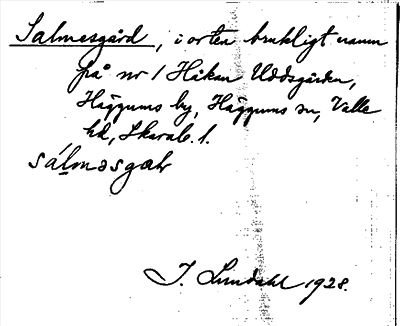 Salmesgård, i orten brukligt namn
på nr 1 Håkan Uddsgården,
Häggums by, Häggums sn, Valle
hd, Skarab. l.
sálmasgaḷr
I. Lundahl 1928.